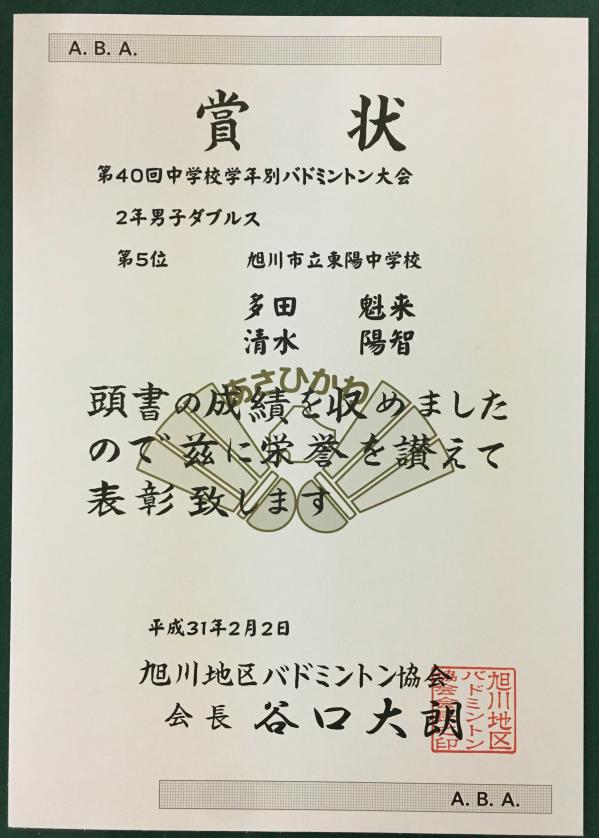 A. B. A.
賞 状
第40回中学校学年別バドミントン大会
2年男子ダブルス
第5位 旭川市立東陽中学校
多田 魁来
清水 陽智
あさひかわ
頭書の成績を収めました
ので茲に栄誉を讃えて
表彰致します
平成31年2月2日
旭川地区バドミントン協会
会長 谷口大朗
旭川地区
バドミントン
協会会長之印
A. B. A.